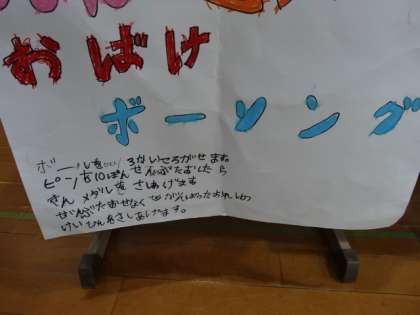 おばけ
ボーリング
ボールを 3かいころがせます
ピンを10ぽん ぜんぶたおしたら
きん メダルを さしあげます
ぜんぶたおせなくても がんばったおれいの
けいひんをさしあげます。